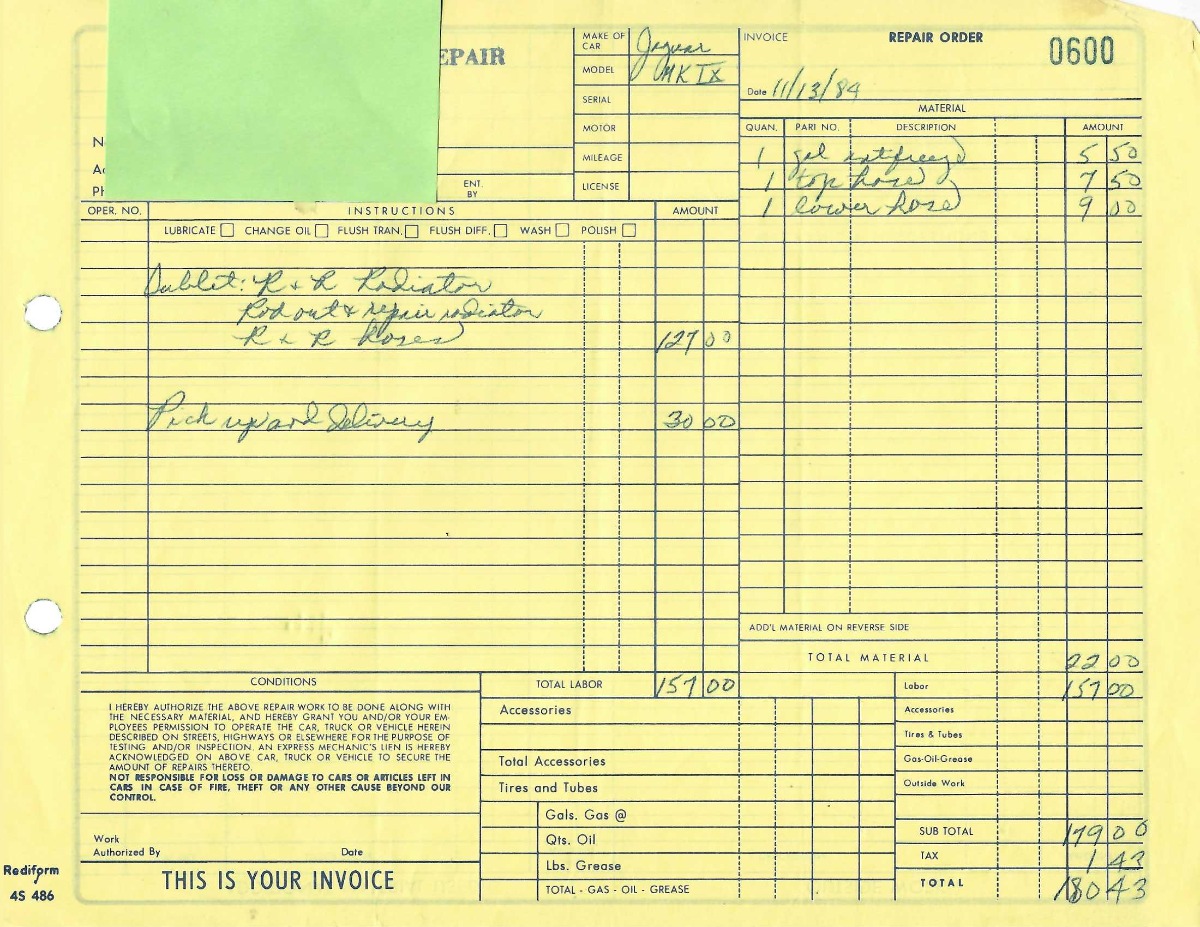 EPAIR
MAKE OF CAR Jaguar
MODEL MK IX
SERIAL
MOTOR
MILEAGE
LICENSE
ENT. BY
INVOICE REPAIR ORDER 0600
Date 11/13/84
MATERIAL
QUAN. PART NO. DESCRIPTION AMOUNT
1 gal antfreeze 5 50
1 top hose 7 50
1 lower hose 9 00
OPER. NO. INSTRUCTIONS AMOUNT
LUBRICATE CHANGE OIL FLUSH TRAN. FLUSH DIFF. WASH POLISH
Sublet: R + R Radiator
Rod out + repair radiator
R + R hoses 127 00
Pick up and delivery 30 00
ADD'L MATERIAL ON REVERSE SIDE
TOTAL MATERIAL 22 00
CONDITIONS
I HEREBY AUTHORIZE THE ABOVE REPAIR WORK TO BE DONE ALONG WITH
THE NECESSARY MATERIAL, AND HEREBY GRANT YOU AND/OR YOUR EM-
PLOYEES PERMISSION TO OPERATE THE CAR, TRUCK OR VEHICLE HEREIN
DESCRIBED ON STREETS, HIGHWAYS OR ELSEWHERE FOR THE PURPOSE OF
TESTING AND/OR INSPECTION. AN EXPRESS MECHANIC'S LIEN IS HEREBY
ACKNOWLEDGED ON ABOVE CAR, TRUCK OR VEHICLE TO SECURE THE
AMOUNT OF REPAIRS THERETO.
NOT RESPONSIBLE FOR LOSS OR DAMAGE TO CARS OR ARTICLES LEFT IN
CARS IN CASE OF FIRE, THEFT OR ANY OTHER CAUSE BEYOND OUR
CONTROL.
Work
Authorized By Date
THIS IS YOUR INVOICE
Rediform
4S 486
TOTAL LABOR 157 00
Accessories
Total Accessories
Tires and Tubes
Gals. Gas @
Qts. Oil
Lbs. Grease
TOTAL - GAS - OIL - GREASE
Labor 157 00
Accessories
Tires & Tubes
Gas-Oil-Grease
Outside Work
SUB TOTAL 179 00
TAX 1 43
TOTAL 180 43